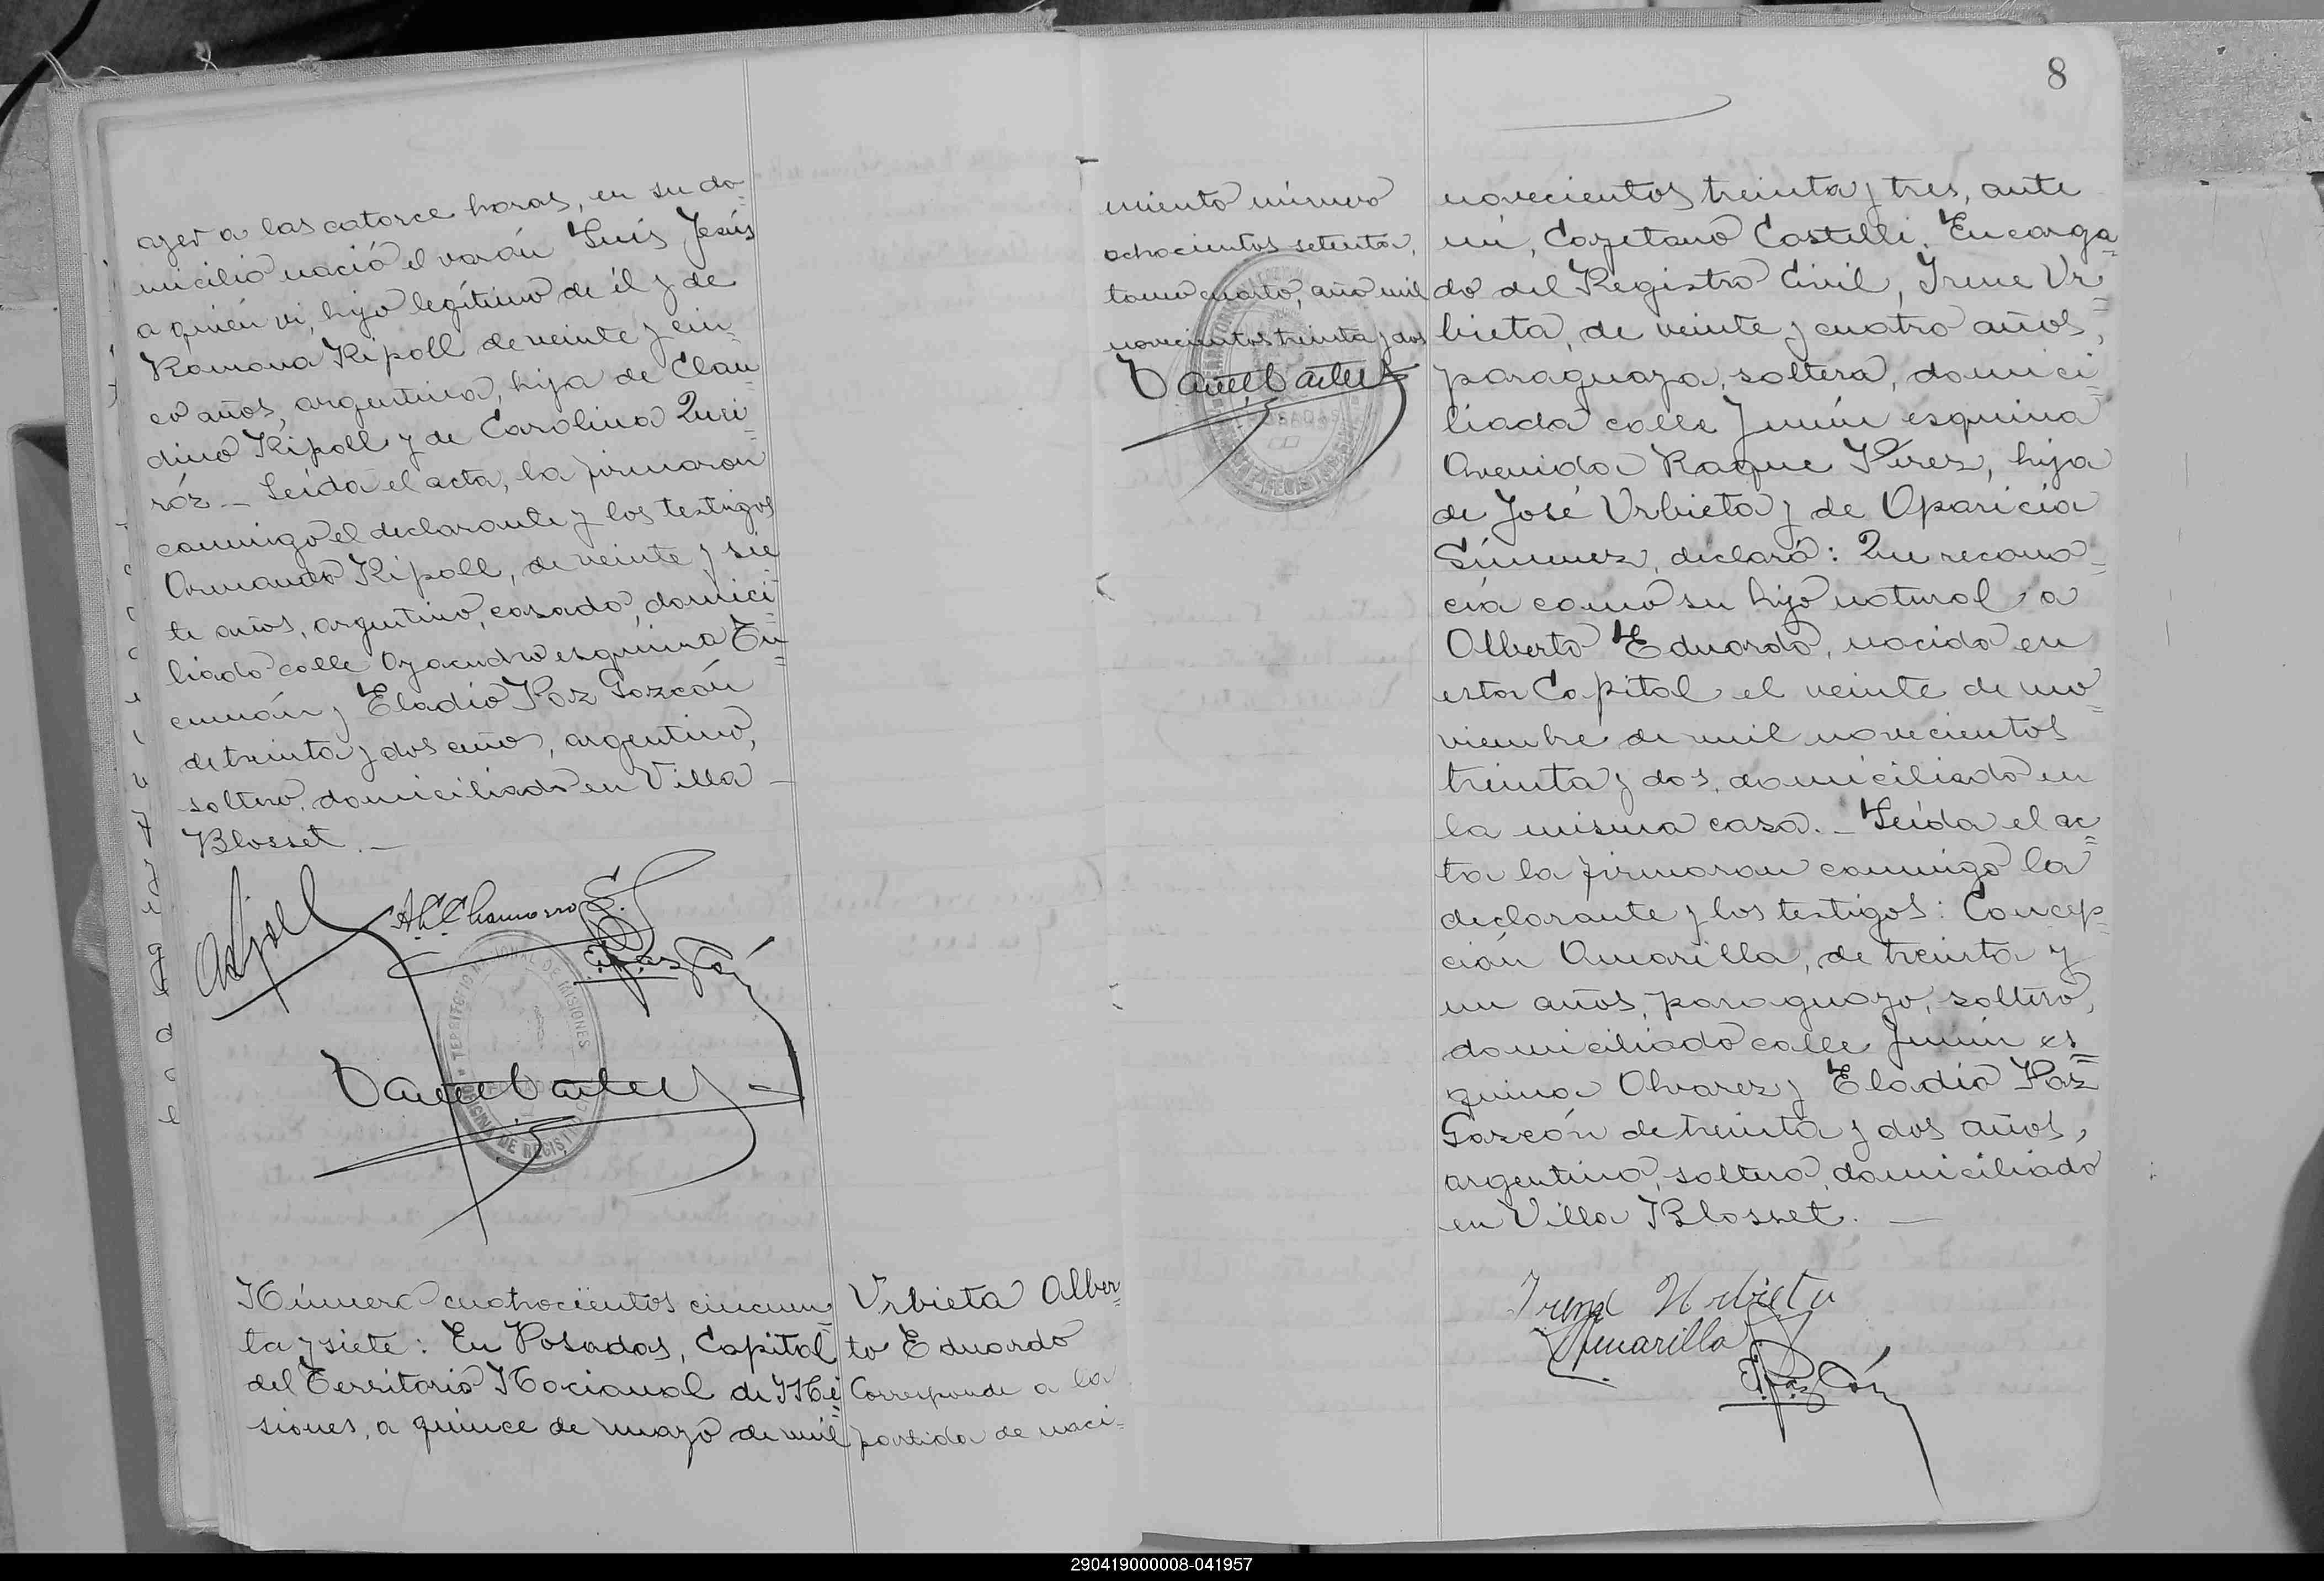 ayer a las catorce horas, en su do=
micilio nació el varón Luis Jesús
a quién vi, hijo legítimo de él y de
Ramona Ripoll de veinte y cin=
co años, argentina, hija de Clau=
dino Ripoll y de Carolina Quei=
róz._ Leída el acta, la firmaron
conmigo el declarante y los testigos
Armando Ripoll, de veinte y sie=
te años, argentino, casado, domici=
liado calle Ayacucho esquina Tu=
cumán y Eladio Paz Garzón
de treinta y dos años, argentino,
soltero, domiciliado en Villa
Blosset._
Chamorro
TERRITORIO NACIONAL DE MISIONES
Número cuatrocientos cincuen=
ta y siete: En Posadas, Capital
del Territorio Nacional de Mi=
siones, a quince de mayo de mil
Urbieta Alber=
to Eduardo
Corresponde a la
partida de naci=
8
miento número
ochocientos setenta,
tomo cuarto, año mil
novecientos treinta y dos
POSADAS
novecientos treinta y tres, ante
mí, Cayetano Castelli, Encarga=
do del Registro Civil, Irene Ur=
bieta, de veinte y cuatro años,
paraguaya, soltera, domici=
liada calle Junín esquina
Avenida Roque Pérez, hija
de José Urbieta y de Aparicia
declaró: Que recono=
cía como su hijo natural a
Alberto Eduardo, nacido en
esta Capital el veinte de no=
viembre de mil novecientos
treinta y dos, domiciliado en
la misma casa._ Leída el ac=
ta la firmaron conmigo la
declarante y los testigos: Concep=
ción Amarilla, de treinta y
un años, paraguayo, soltero,
domiciliado calle Junín es=
quina Alvarez y Eladio Paz
Garzón de treinta y dos años,
argentino, soltero, domiciliado
en Villa Blosset._
Irene Urbieta
Amarilla
290419000008-041957